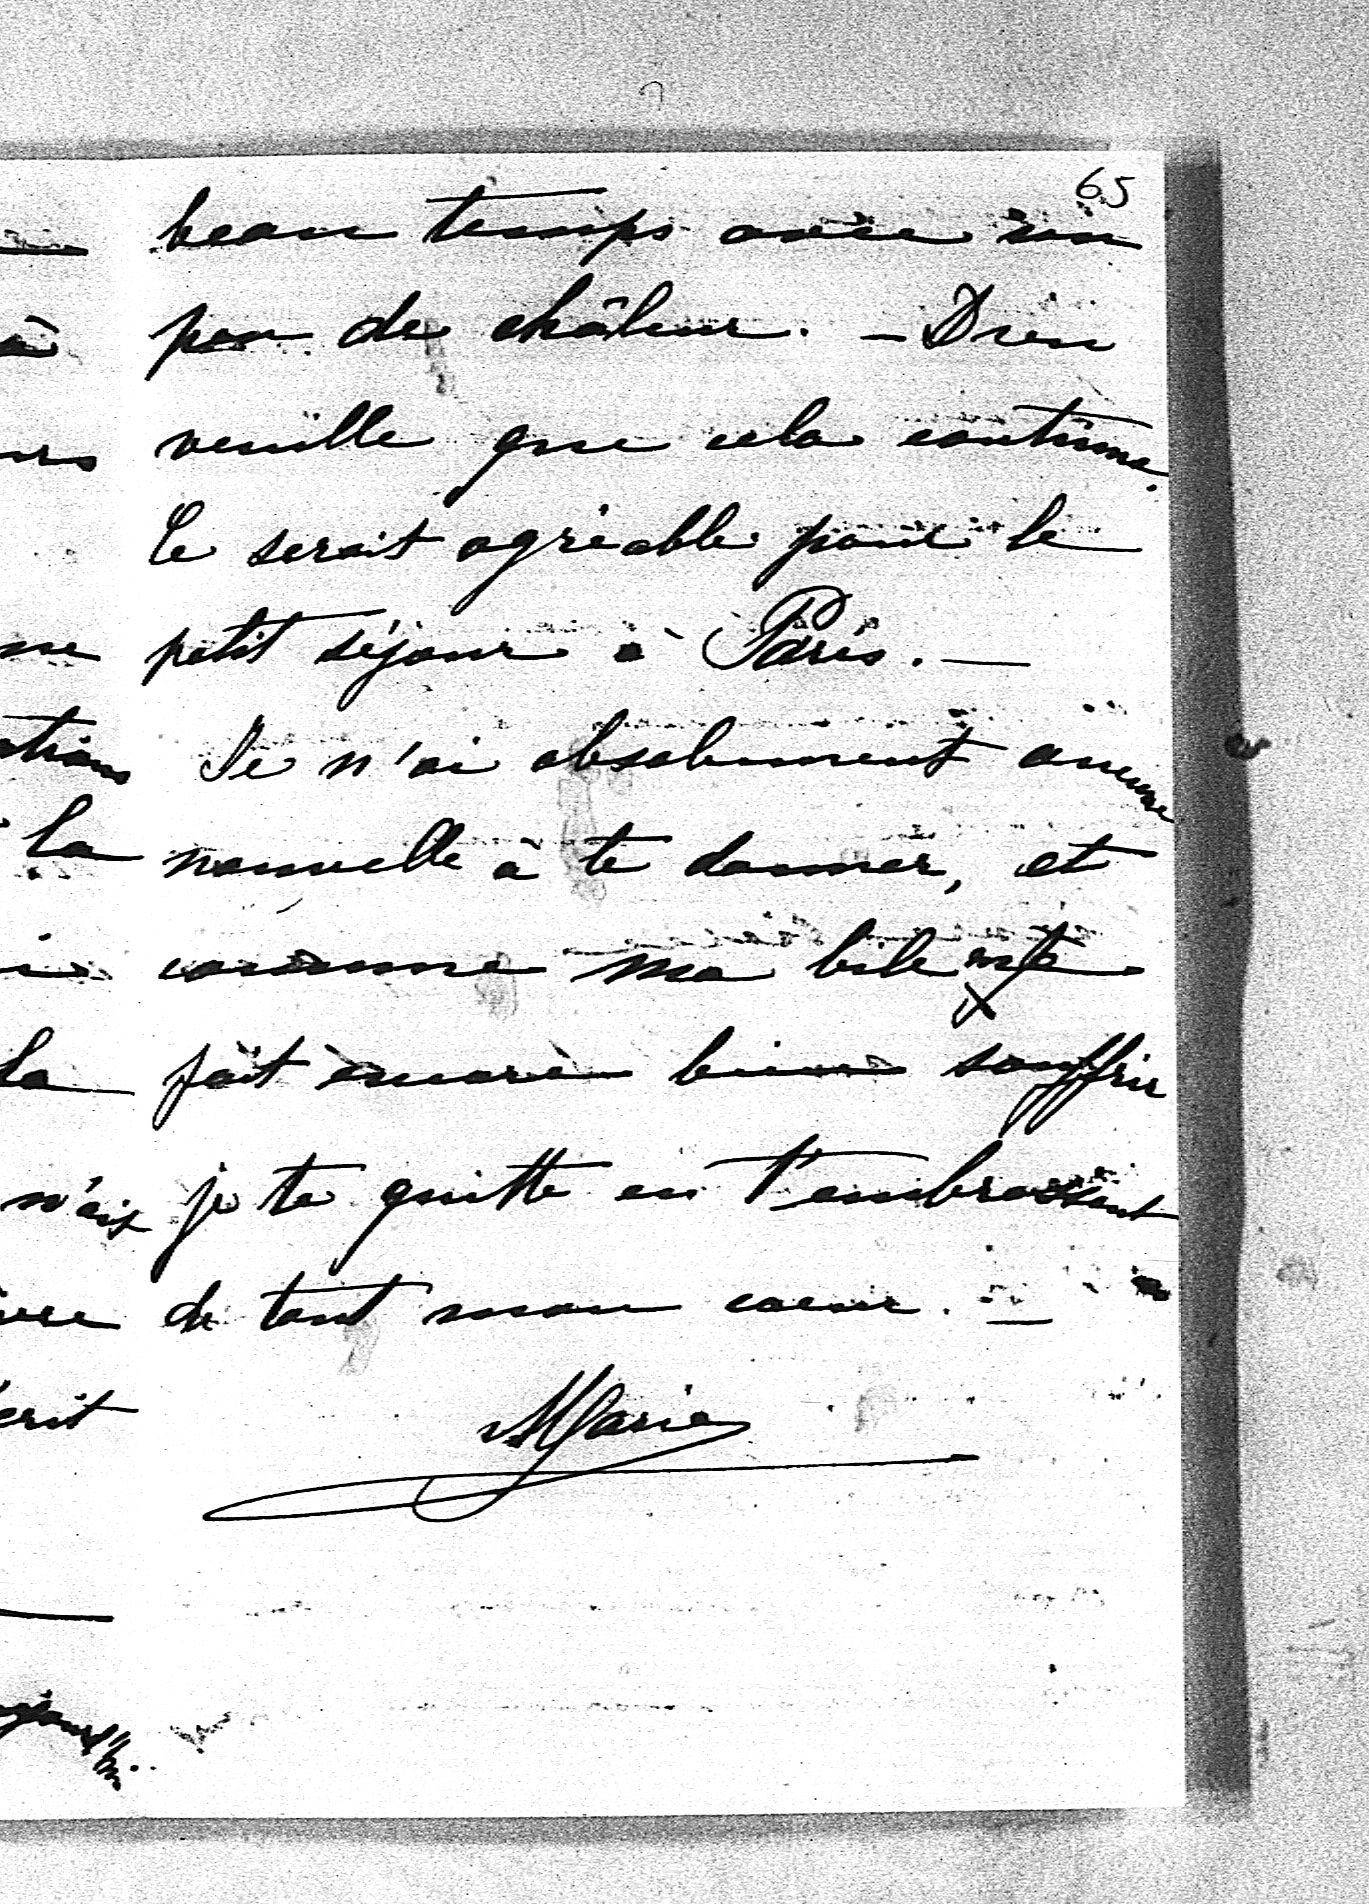 65
beau temps avec un
peu de châleur. — Dieu
veuille que cela continue.
Ce serait agréable pour le
petit séjour à Paris. —
Je n'ai absolument aucune
nouvelle à te donner, et
comme ma bile
fait encore bien souffrir
je te quitte en t'embrassant
de tout mon coeur. —
Marie
à
la
la
n'ai